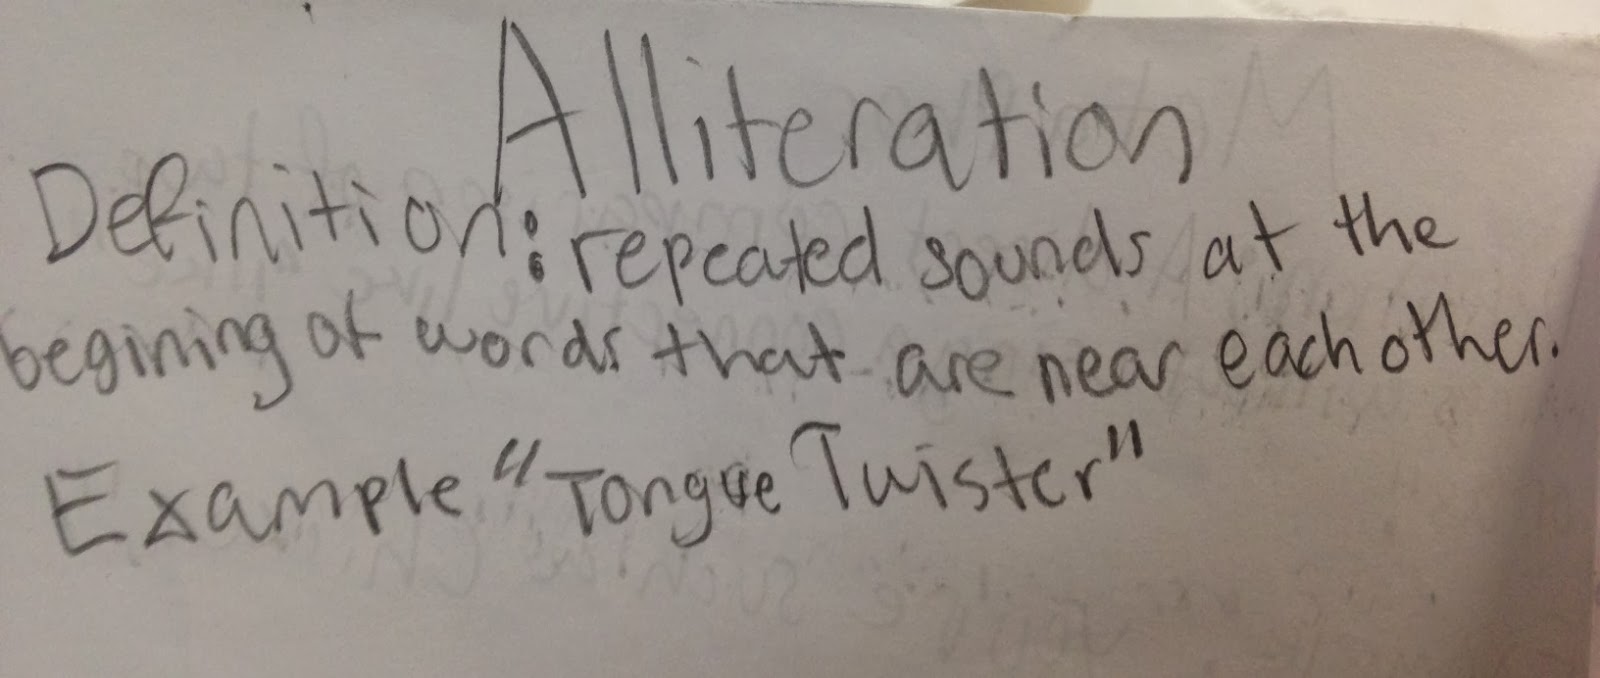 Alliteration
Definition: repeated sounds at the
begining of words that are near each other.
Example "Tongue Twister"